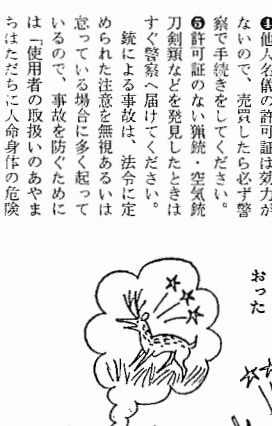 ❹他人名儀の許可証は効力が
ないので、売買したら必ず警
察で手続きをしてください。
❺許可証のない猟銃・空気銃
刀剣類などを発見したときは
すぐ警察へ届けてください。
銃による事故は、法令に定
められた注意を無視あるいは
怠っている場合に多く起って
いるので、事故を防ぐために
は「使用者の取扱いのあやま
ちはただちに人命身体の危険
おった